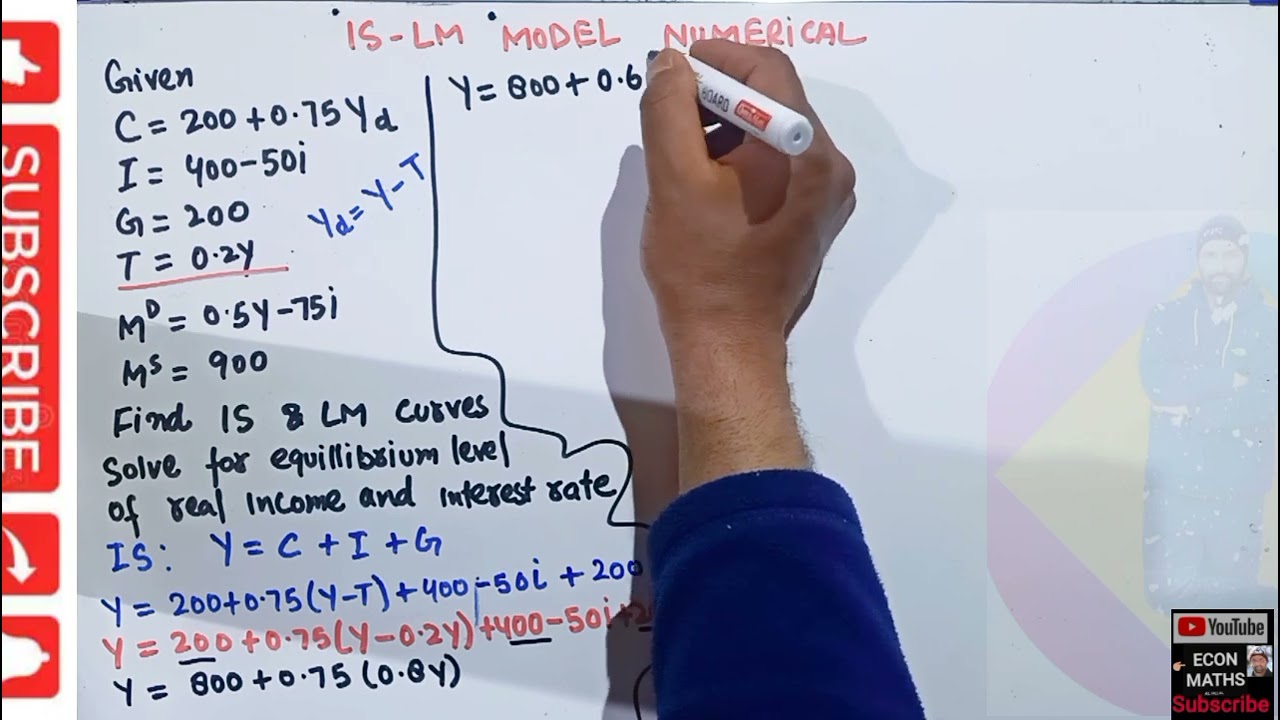 IS-LM MODEL NUMERICAL
Given
C = 200 + 0.75 Yd
I = 400 - 50i
G = 200
T = 0.2Y
Yd = Y - T
M^D = 0.5Y - 75i
M^S = 900
Find IS & LM curves
Solve for equillibrium level
of real income and interest rate
IS: Y = C + I + G
Y = 200 + 0.75 (Y-T) + 400 - 50i + 200
Y = 200 + 0.75 (Y - 0.2Y) + 400 - 50i + 2
Y = 800 + 0.75 (0.8Y)
Y = 800 + 0.6
BOARD
SUBSCRIBE
YouTube
ECON
MATHS
Subscribe